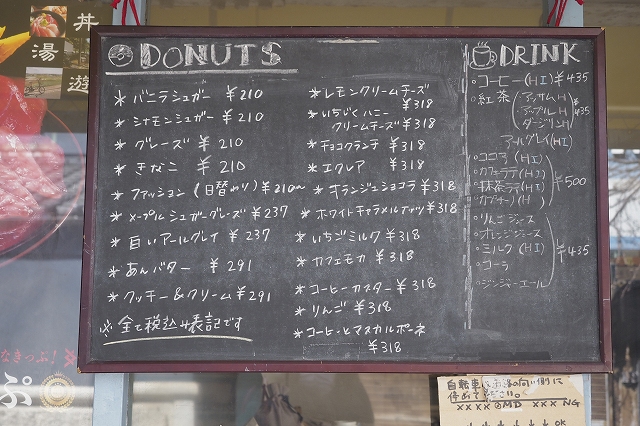 丼
湯 遊
DONUTS
* バニラシュガー ¥210
* シナモンシュガー ¥210
* グレーズ ¥210
* きなこ ¥210
* ファッション (日替わり) ¥210~
* メープルシュガーグレーズ ¥237
* 白いアールグレイ ¥237
* あんバター ¥291
* クッキー&クリーム ¥291
※全て税込み表記です
* レモンクリームチーズ
¥318
* いちじくハニー
クリームチーズ ¥318
* チョコクランチ ¥318
* エクレア ¥318
* オランジェショコラ ¥318
* ホワイトキャラメルナッツ ¥318
* いちごミルク ¥318
* カフェモカ ¥318
* コーヒーカスター ¥318
* りんご ¥318
* コーヒーとマスカルポーネ
¥318
DRINK
コーヒー (HI) ¥435
紅茶 (アッサムH
アップルH ¥435
ダージリンH)
アールグレイ(HI)
ココア (HI)
カフェラテ(HI)
抹茶ラテ(HI) ¥500
カプチーノ(H)
りんごジュース
オレンジジュース
ミルク (HI) ¥435
コーラ
ジンジャーエール
なきっぷ!
ぷ
自転車は
の向い側に
停めて ください。
×××× MD ××× NG
↓ ↓ ↓ ↓ ↓ OK